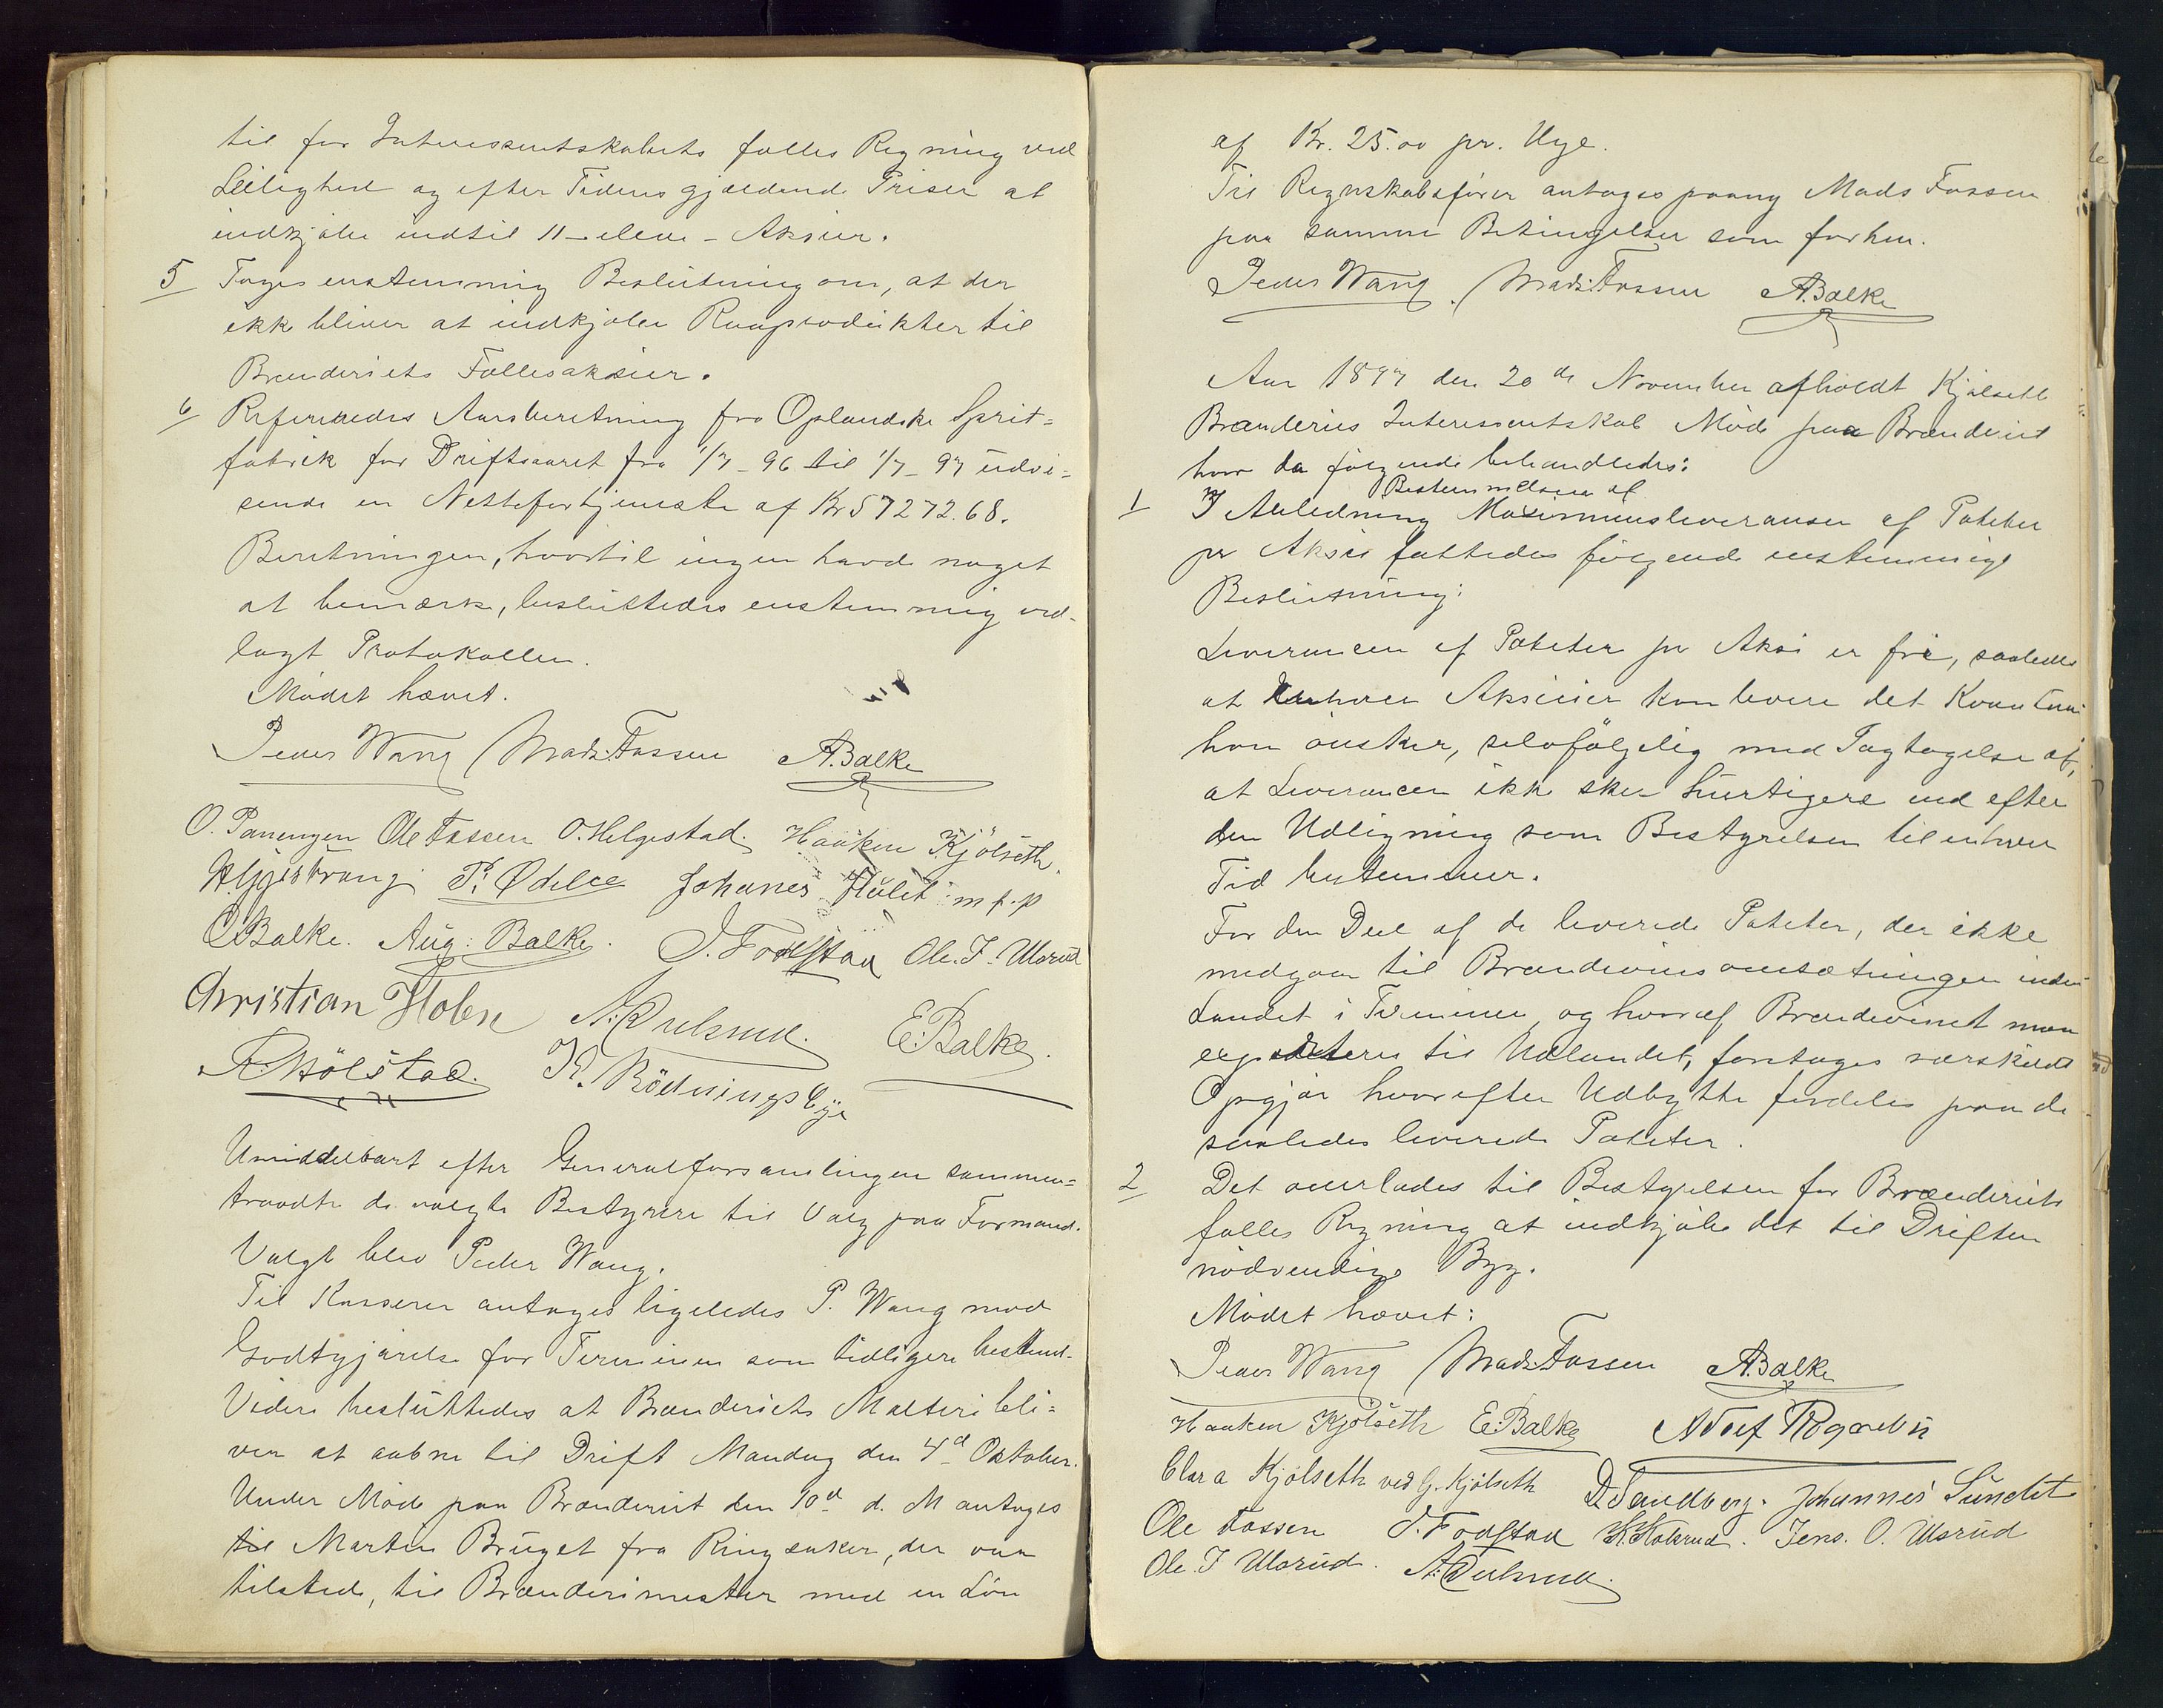 til for Interessentskabets fælles Regning ved
Leilighed og efter Tidens gjældende Priser at
indkjøbe indtil 11 - eleve - Aksier.
5 Toges enstemmig Beslutning om, at der
ikke bliver at indkjøbe Raaprodukter til
Brænderiets Fællesaksier.
6 Refereredes Aarsberetning fra Oplandske Sprit=
fabrik for Driftsaaret fra 1/7-96 til 1/7-97 udvi=
sende en Nettofortjeneste af Kr 57272.68.
Beretningen, hvortil ingen havde noget
at bemærke, besluttedes enstemmig ved-
lagt Protokollen.
Mødet hævet.
Peder Wang Mads Fossen A. Balke
O. Panengen Ole Fossen O. Helgestad. Haaken Kjölseth.
P. Ødelee Johanes m f. p
O Balke. Aug: Balke. J. Fodstad Ole. J. Ulsrud
Christian A. Rulsrud. E. Balke.
A. Hölstad. K. Rödningsbye
Umiddelbart efter Generalforsamlingen sammen=
traadte de valgte Bestyrere til Valg paa Formand.
Valgt blev Peder Wang.
Til Kasserer antoges ligeledes P. Wang mod
Godtgjørelse for Terminen som tidligere bestemt.
Videre besluttedes at Brænderiets Malteri bli=
ver at aabne til Drift Mandag den 4d Oktober.
Under Møde paa Brænderiet den 10d d. M antoges
til Martin Bruget fra Ringsaker, der var
tilstede, til Brænderimester med en Løn
af Kr. 25.00 pr. Uge.
Til Regnskabsfører antoges paany Mads Fossen
paa samme Betingelser som forhen.
Peder Wang. Mads Fossen A. Balke
Aar 1897 den 20de November afholdt Kjølseth
Brænderies Interessentskab Møde paa Brænderiet
hvor da følgende behandledes:
Bestemmelsen af
1 I Anledning Maximumsleveransen af Poteter
pr Aksie fattedes følgende enstemmige
Beslutning:
Leverancen af Poteter pr Aksi er fri, saaledes
at Enhver Aksieier kan levere det Kvantum
han ønsker, selvfølgelig med Iagtagelse af,
at Leverancen ikke sker hurtigere end efter
den Udligning som Bestyrelsen til enhver
Tid bestemmer.
For den Del af de leverede Poteter, der ikke
medgaar til Brændevinsomsætningen inden
Landet i Terminen, og hvoraf Brændevinet maa
expederes til Udlandet, foretages særskildt
Opgjør hvorefter Udbytte fordeles paa de
saaledes leverede Poteter.
2 Det overlades til Bestyrelsen for Brænderiets
fælles Regning at indkjøbe det til Driften
nødvendige Byg.
Mødet hævet:
Peder Wang Mads Fossen A. Balke
Haaken Kjölseth E. Balke Adolf
Clara Kjölseth ved G. Kjölseth D. Sandberg. Johannes Sundet
Ole Fossen J. Fodstad K. Kolsrud. Jens. O. Ulsrud
Ole. J Ulsrud. A. Rulsrud.